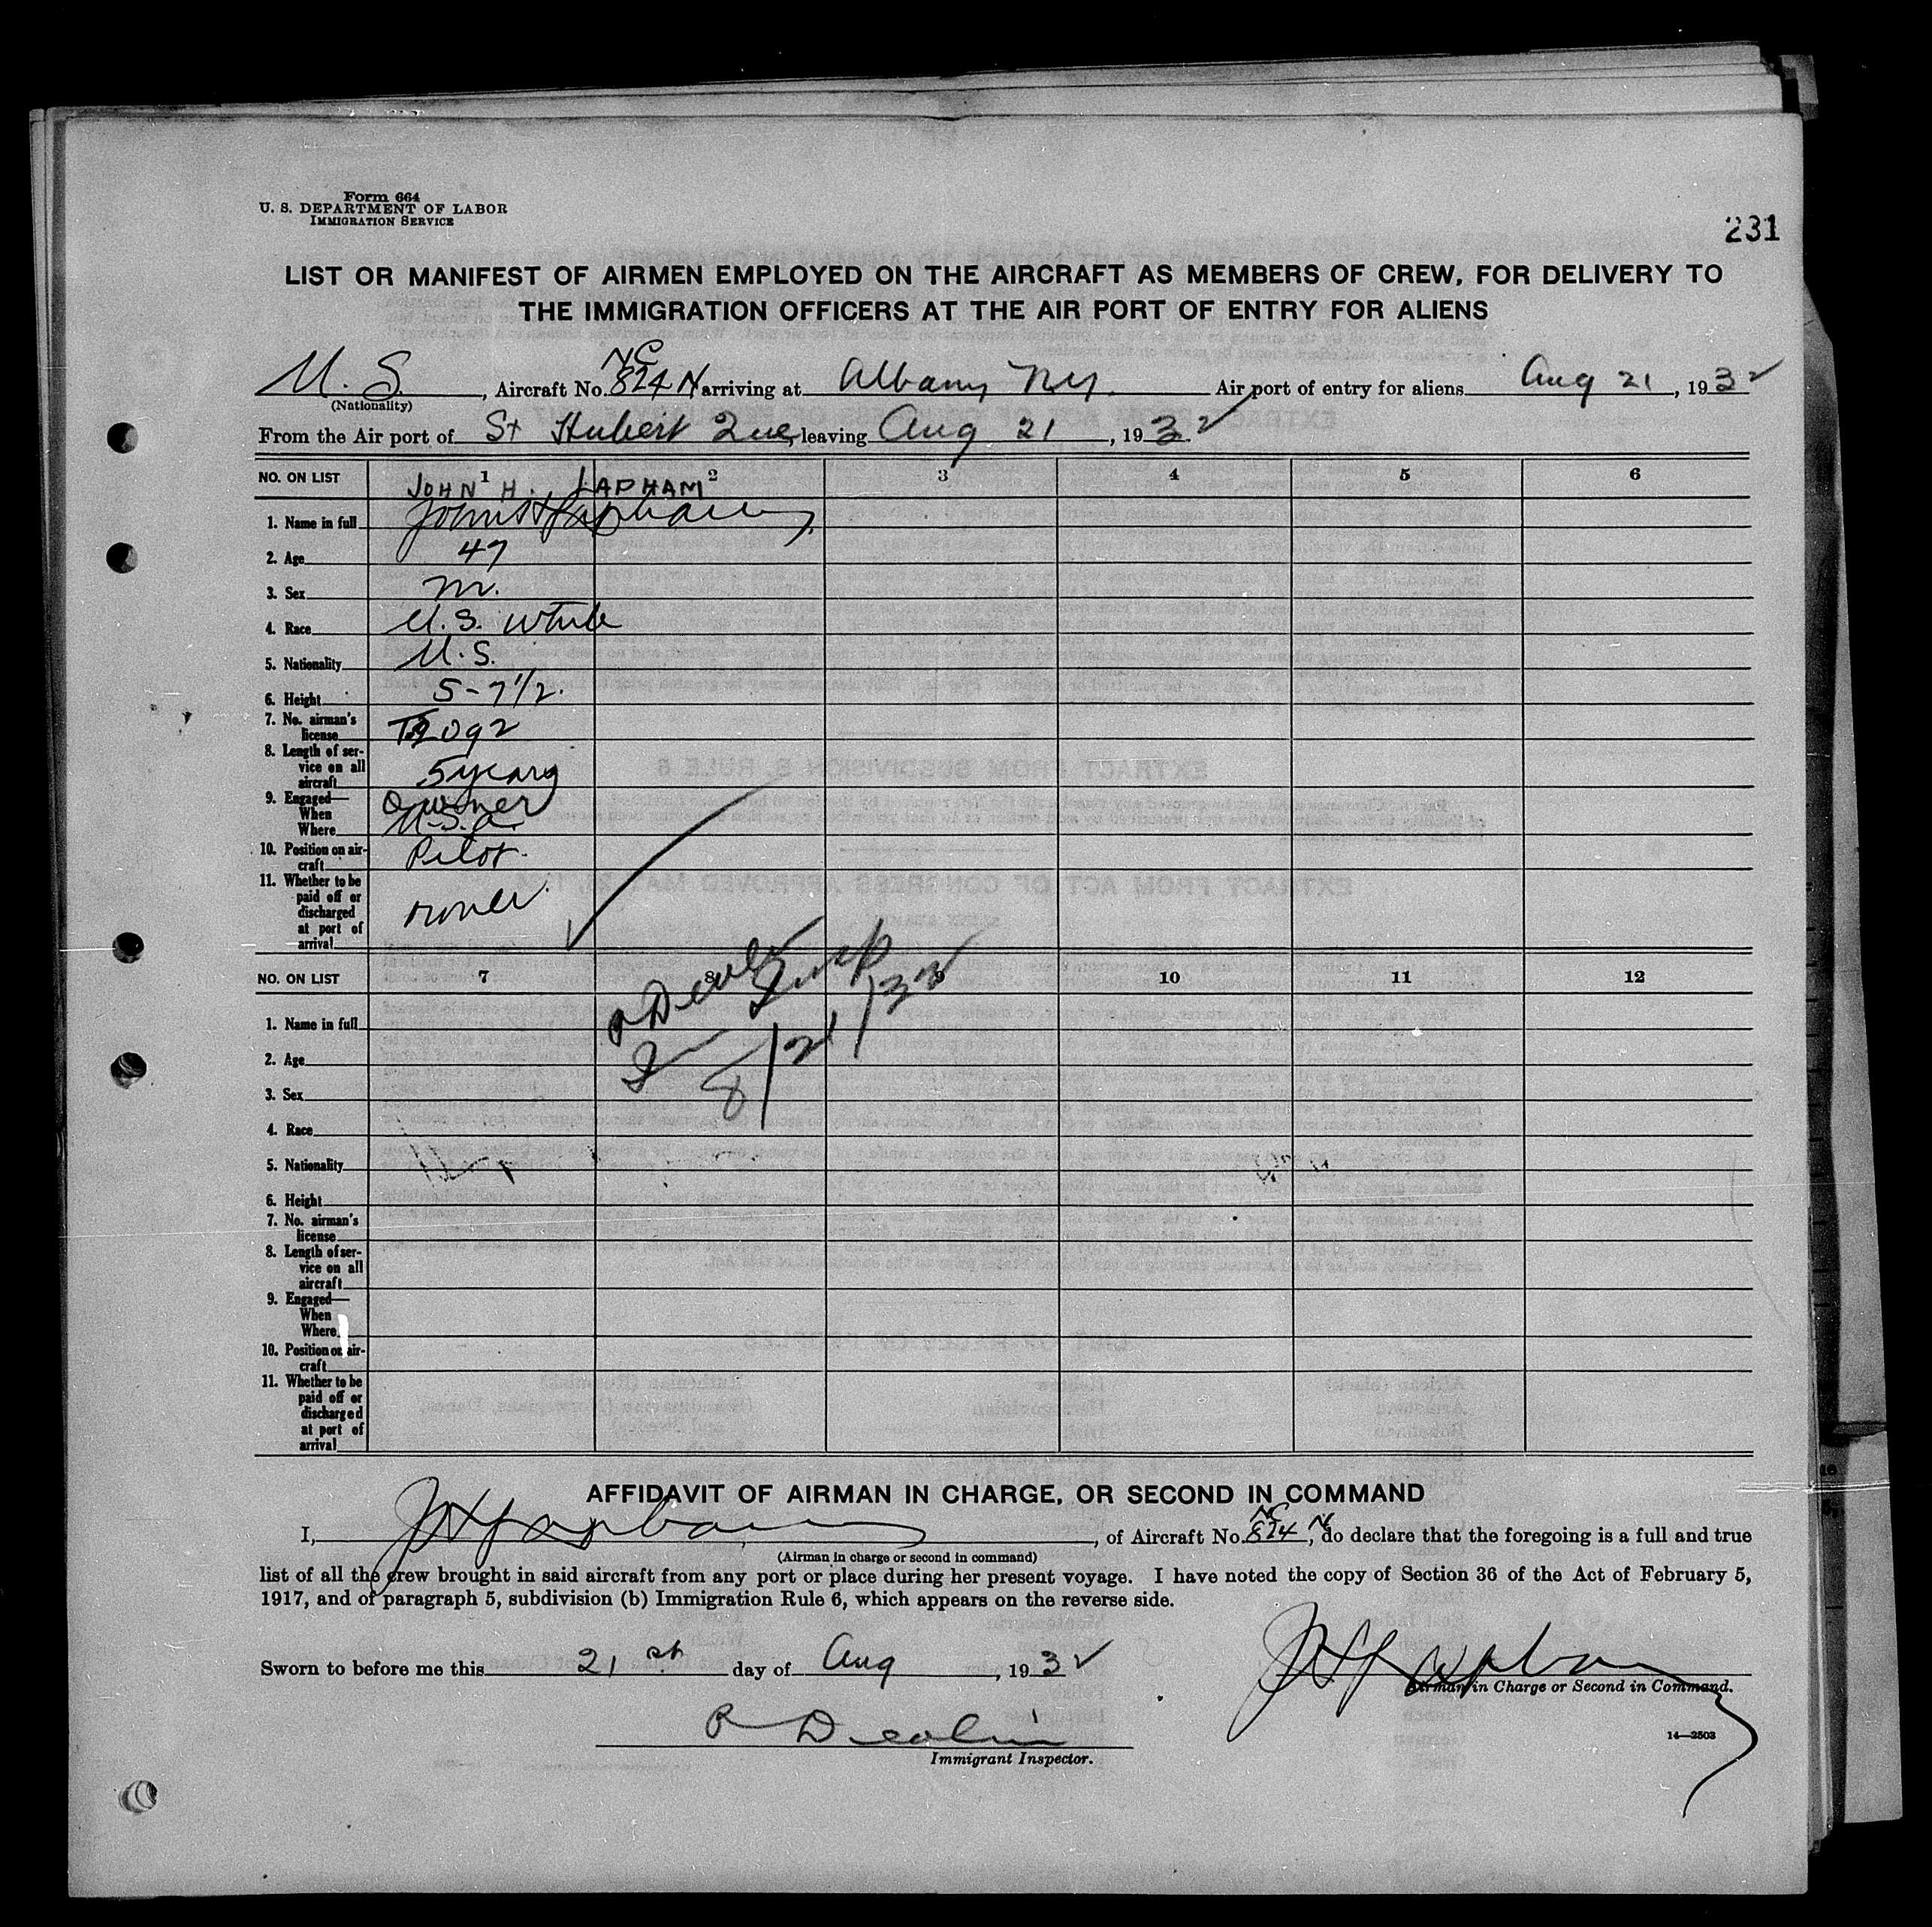 Form 664
U. S. DEPARTMENT OF LABOR
IMMIGRATION SERVICE
231
LIST OR MANIFEST OF AIRMEN EMPLOYED ON THE AIRCRAFT AS MEMBERS OF CREW, FOR DELIVERY TO
THE IMMIGRATION OFFICERS AT THE AIR PORT OF ENTRY FOR ALIENS
U. S., Aircraft No. NC 824 N arriving at Albany NY. Air port of entry for aliens Aug 21, 1932
(Nationality)
From the Air port of St Hubert Que, leaving Aug 21, 1932
NO. ON LIST 1 2 3 4 5 6
JOHN H. LAPHAM
1. Name in full John H Lapham
2. Age 47
3. Sex M.
4. Race U.S. White
5. Nationality U.S.
6. Height 5-7 1/2.
7. No. airman's
license 2092
8. Length of ser-
vice on all
aircraft 5 years
9. Engaged— Owner
When
Where U.S.A.
10. Position on air-
craft Pilot.
11. Whether to be
paid off or
discharged
at port of
arrival owner
NO. ON LIST 7 8 9 10 11 12
8/21/32
1. Name in full
2. Age
3. Sex
4. Race
5. Nationality
6. Height
7. No. airman's
license
8. Length of ser-
vice on all
aircraft
9. Engaged—
When
Where
10. Position on air-
craft
11. Whether to be
paid off or
discharged
at port of
arrival
AFFIDAVIT OF AIRMAN IN CHARGE, OR SECOND IN COMMAND
I, J H Lapham, of Aircraft No. NC 824 N, do declare that the foregoing is a full and true
(Airman in charge or second in command)
list of all the crew brought in said aircraft from any port or place during her present voyage. I have noted the copy of Section 36 of the Act of February 5,
1917, and of paragraph 5, subdivision (b) Immigration Rule 6, which appears on the reverse side.
Sworn to before me this 21st day of Aug, 1932
J H Lapham
Airman in Charge or Second in Command.
Immigrant Inspector.
14—2503